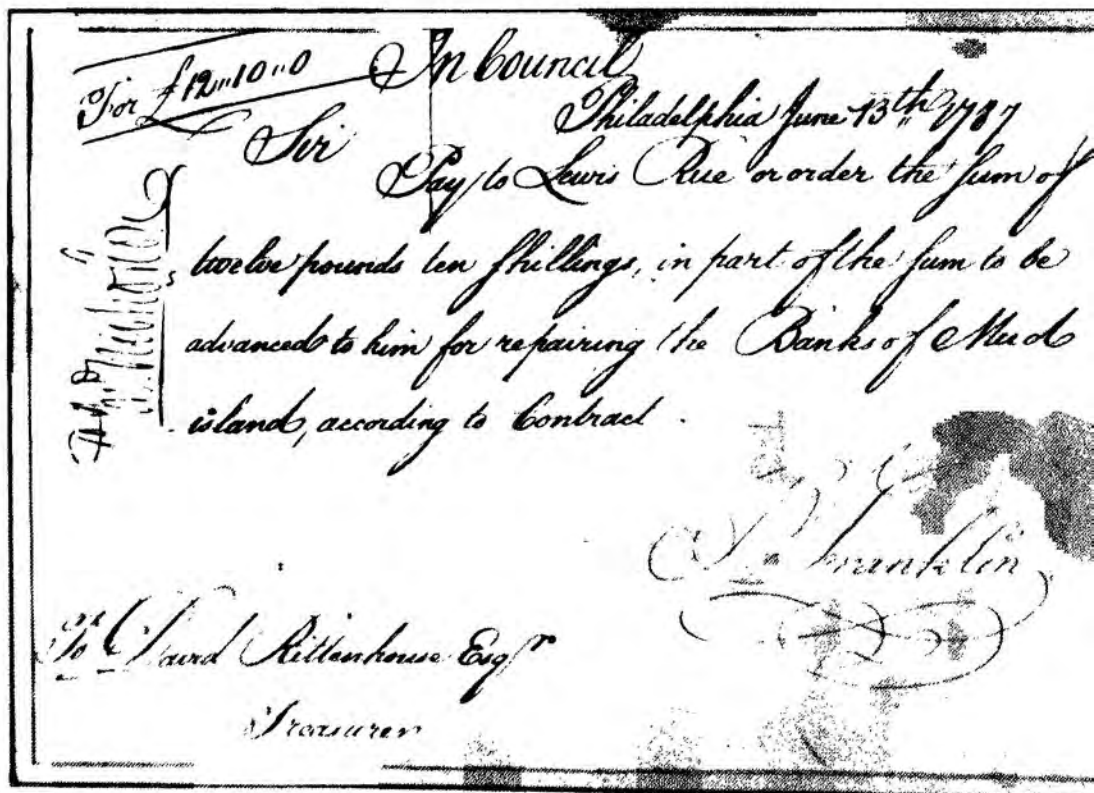 For £12,,10,,0
In Council
Philadelphia June 13th,, 1787
Sir
Pay to Lewis Rue or order the sum of
twelve pounds ten shillings, in part of the sum to be
advanced to him for repairing the Banks of Mud
island, according to Contract.
B. Franklin
To David Rittenhouse Esqr
Treasurer